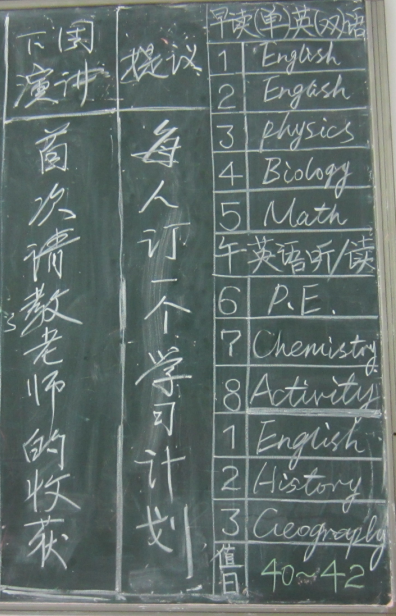 下周
演讲
首次请教老师的收获
提议
每人订一个学习计划
早读(单)英(双)语
1 English
2 English
3 Physics
4 Biology
5 Math
午 英语听/读
6 P.E.
7 Chemistry
8 Activity
1 English
2 History
3 Geography
值日 40~42